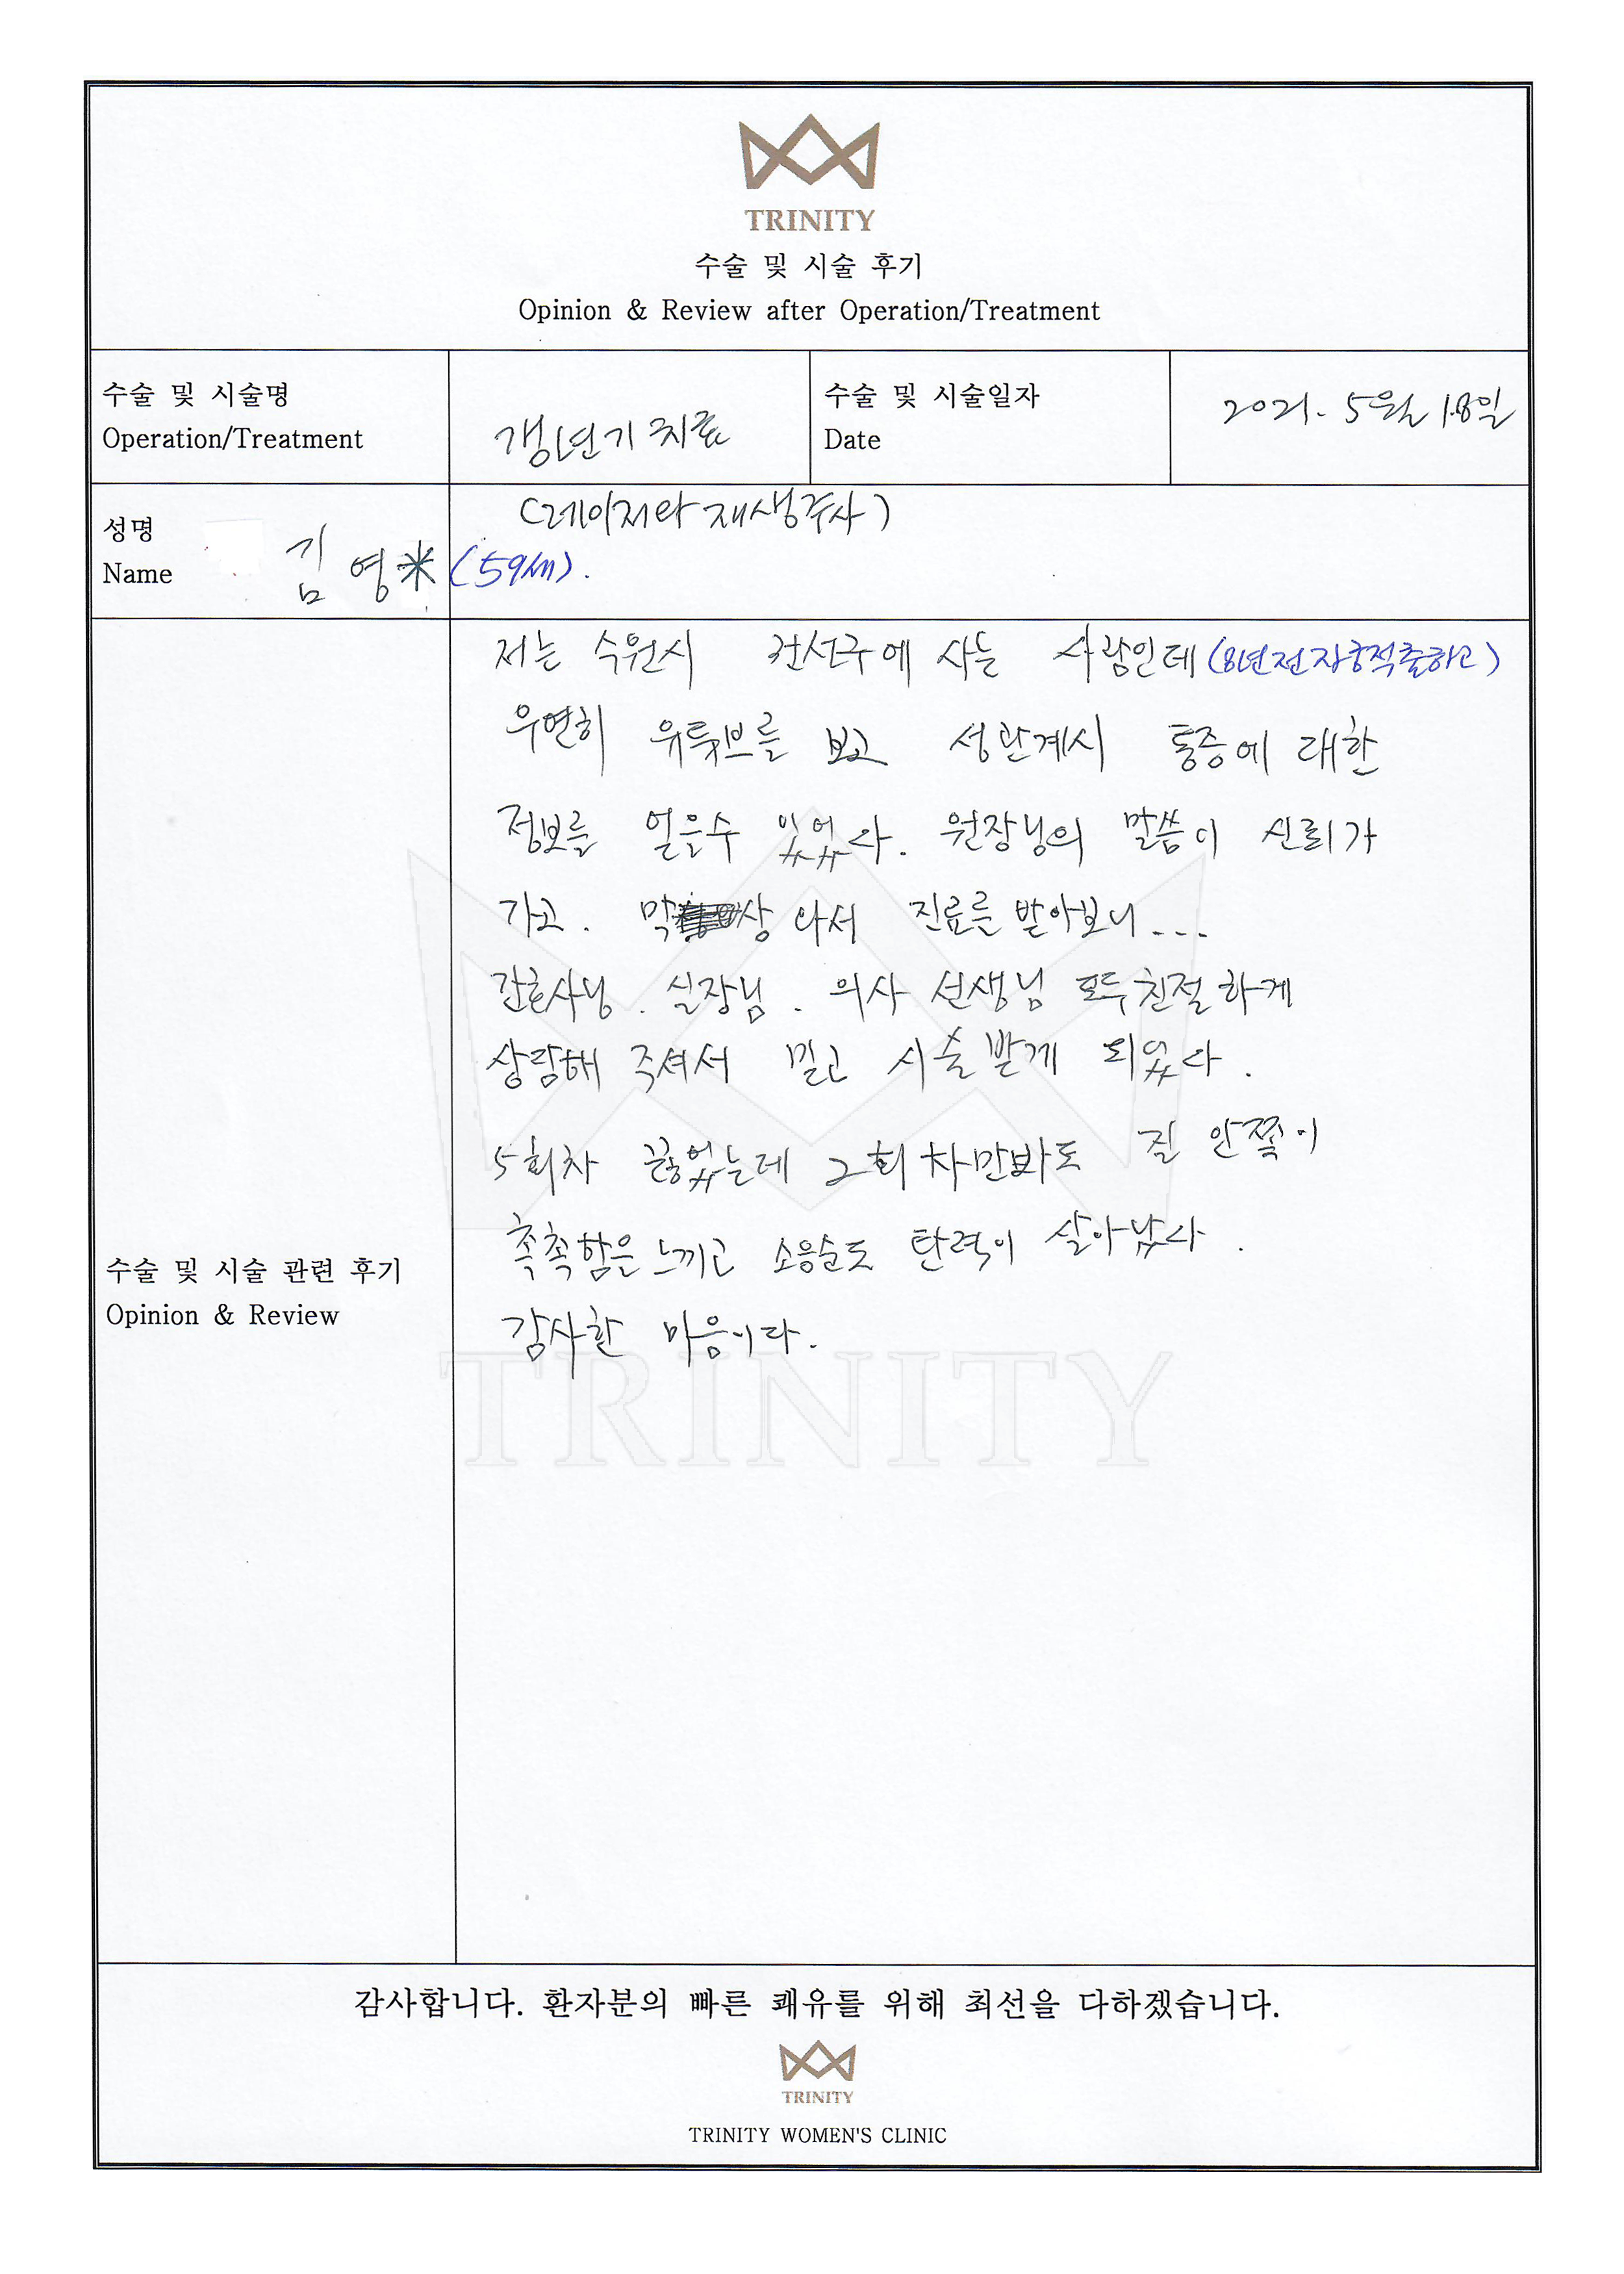 TRINITY
수술 및 시술 후기
Opinion & Review after Operation/Treatment
수술 및 시술명
Operation/Treatment
갱년기 치료
수술 및 시술일자
Date
2021. 5월 18일
(레이저와 재생주사)
성명
Name
김영* (59세).
저는 수원시 권선구에 사는 사람인데 (8년전 자궁적출하고)
우연히 유튲브를 보고 성관계시 통증에 대한
정보를 얻을수 있었다. 원장님의 말씀이 신뢰가
가고. 막상 와서 진료를 받아보니...
간호사님. 실장님. 의사 선생님 모두 친절하게
상담해 주셔서 믿고 시술받게 되었다.
5회차 끊었는데 2회차만봐도 질 안쪽이
촉촉함은 느끼고 소음순도 탄력이 살아났다.
감사한 마음이다.
수술 및 시술 관련 후기
Opinion & Review
TRINITY
감사합니다. 환자분의 빠른 쾌유를 위해 최선을 다하겠습니다.
TRINITY
TRINITY WOMEN'S CLINIC